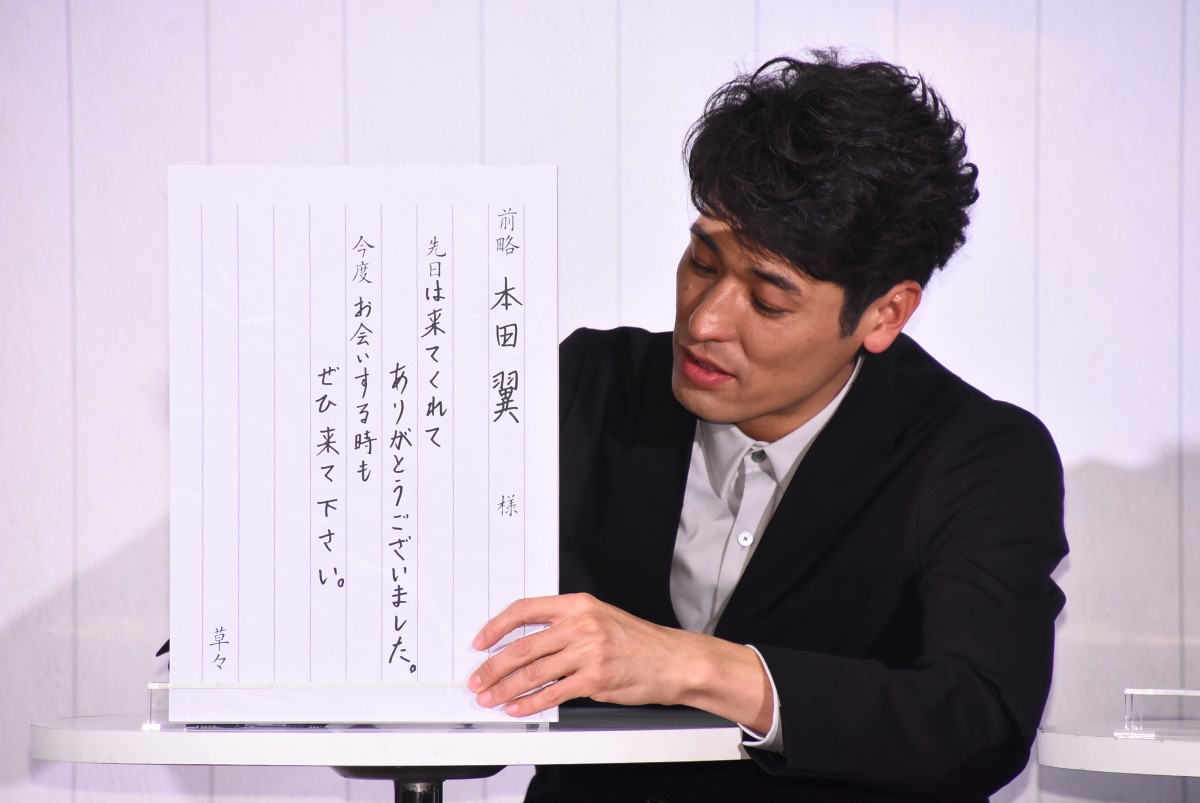 前略 本田翼 様
先日は来てくれて
ありがとうございました。
今度お会いする時も
ぜひ来て下さい。
草々